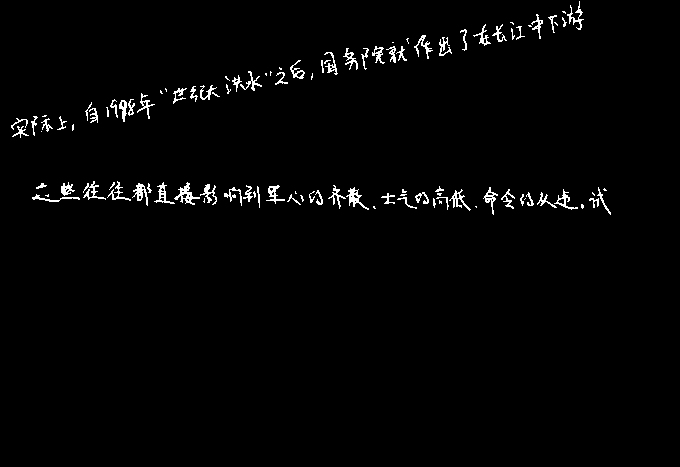 实际上，自1998年“世纪大洪水”之后，国务院就作出了在长江中下游
这些往往都直接影响到军心的齐散、士气的高低、命令的从违。试